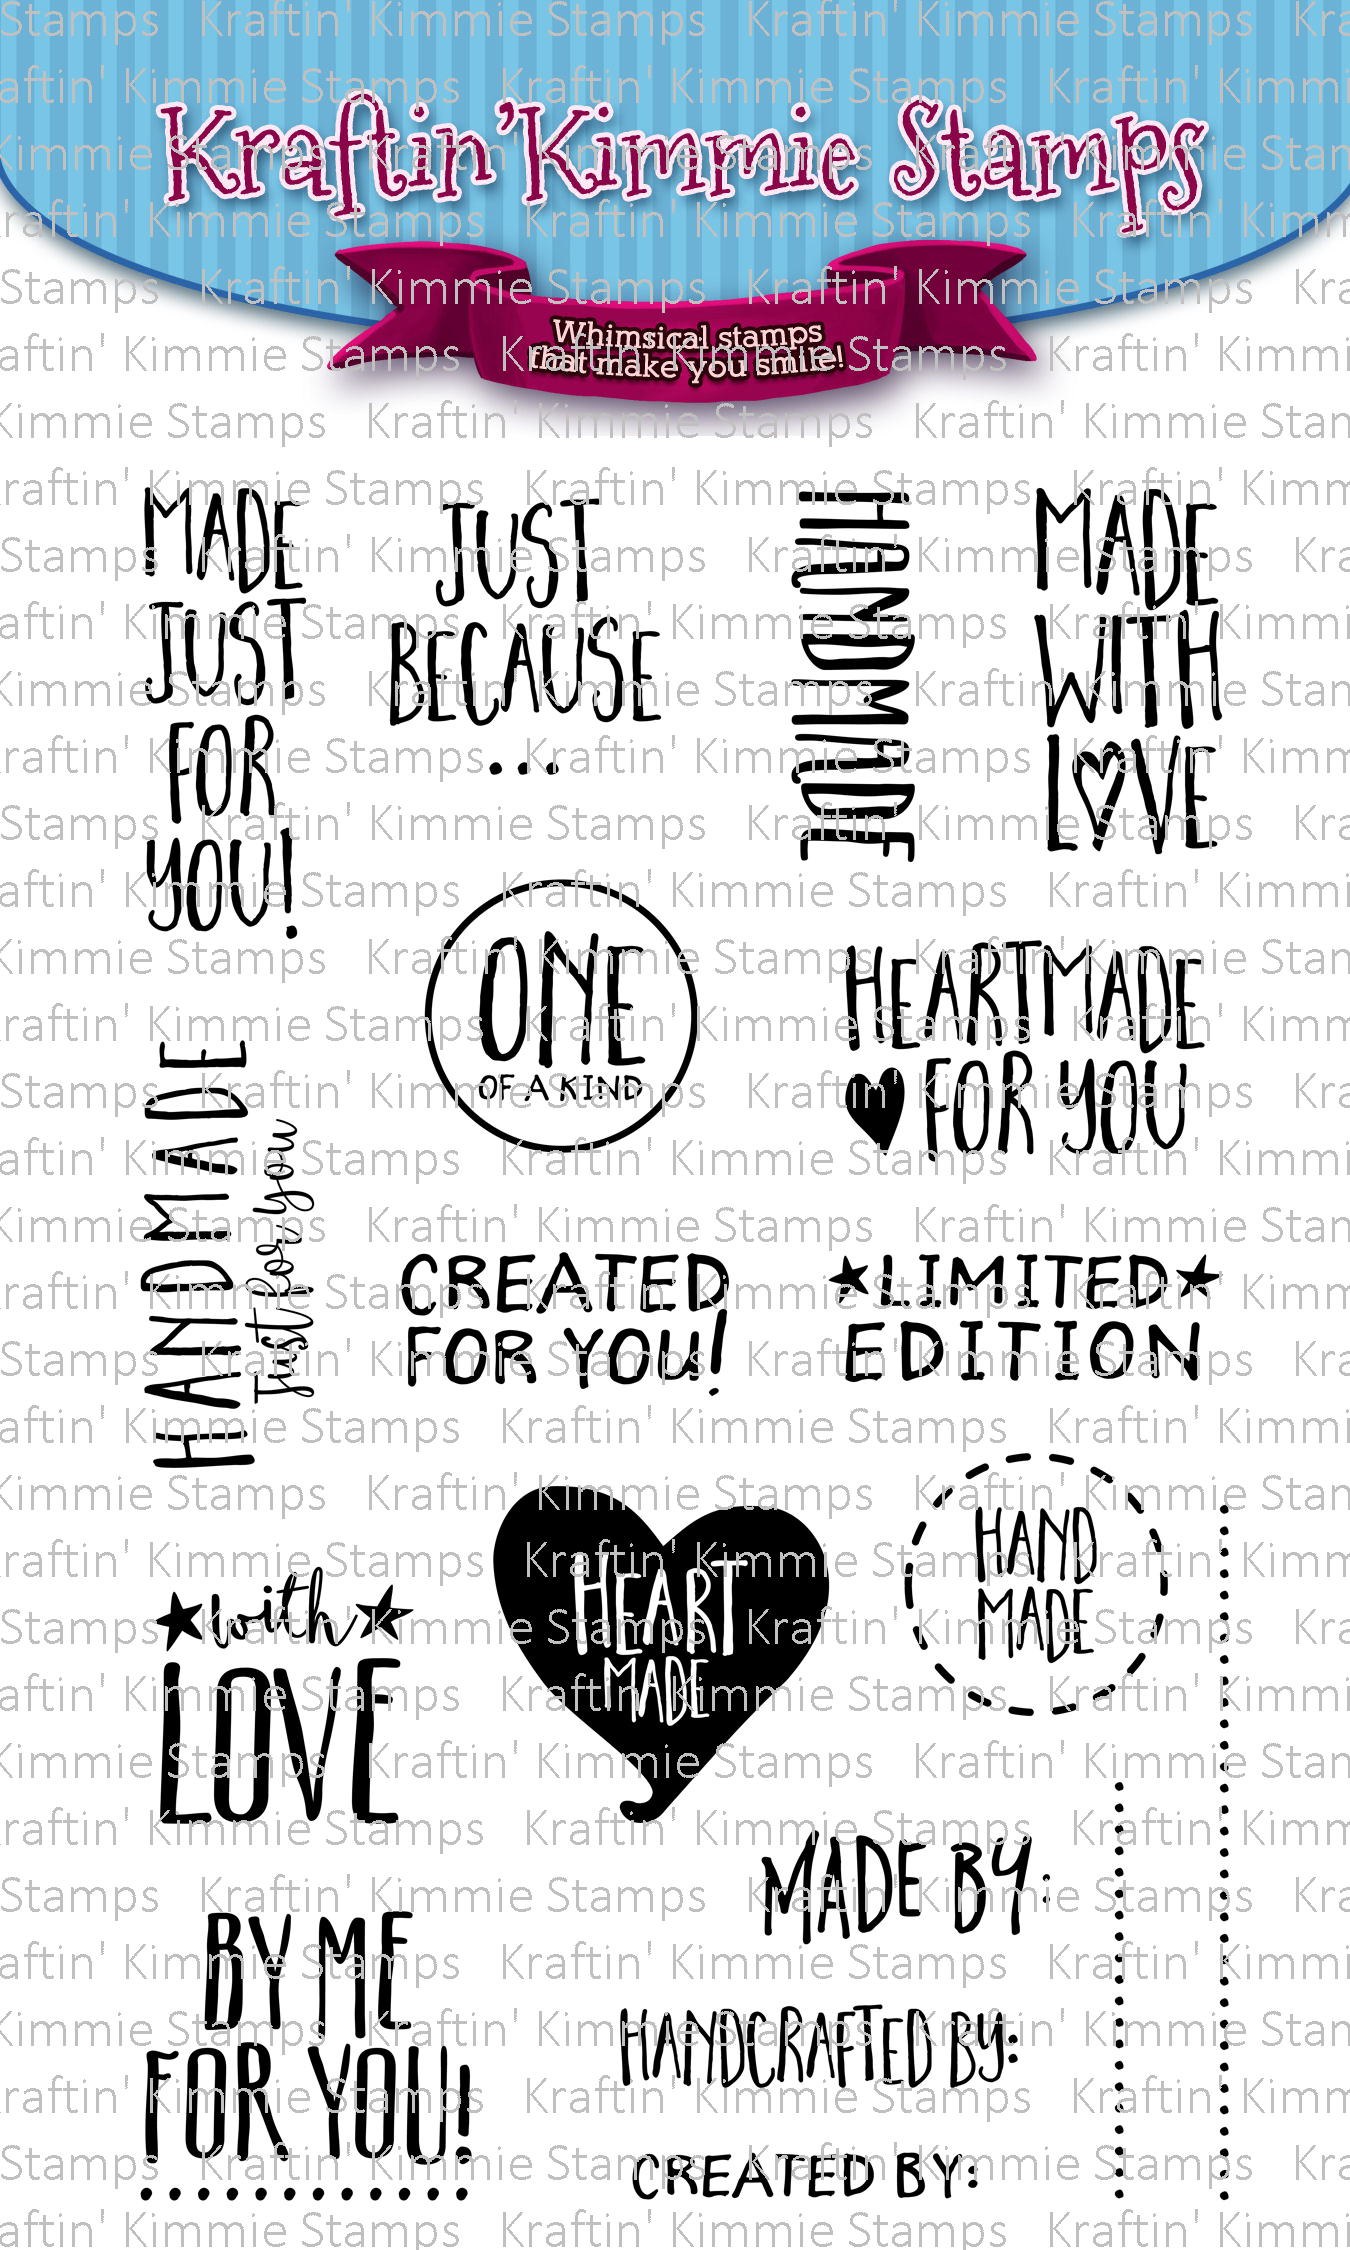 Kraftin' Kimmie Stamps
Whimsical stamps
that make you smile!
MADE
JUST
FOR
YOU!
JUST
BECAUSE
...
HANDMADE
MADE
WITH
LOVE
ONE
OF A KIND
HEARTMADE
FOR YOU
HANDMADE
Just for you
CREATED
FOR YOU!
LIMITED
EDITION
with
LOVE
HEART
MADE
HAND
MADE
BY ME
FOR YOU!
MADE BY:
HANDCRAFTED BY:
CREATED BY:
Kraftin' Kimmie Stamps